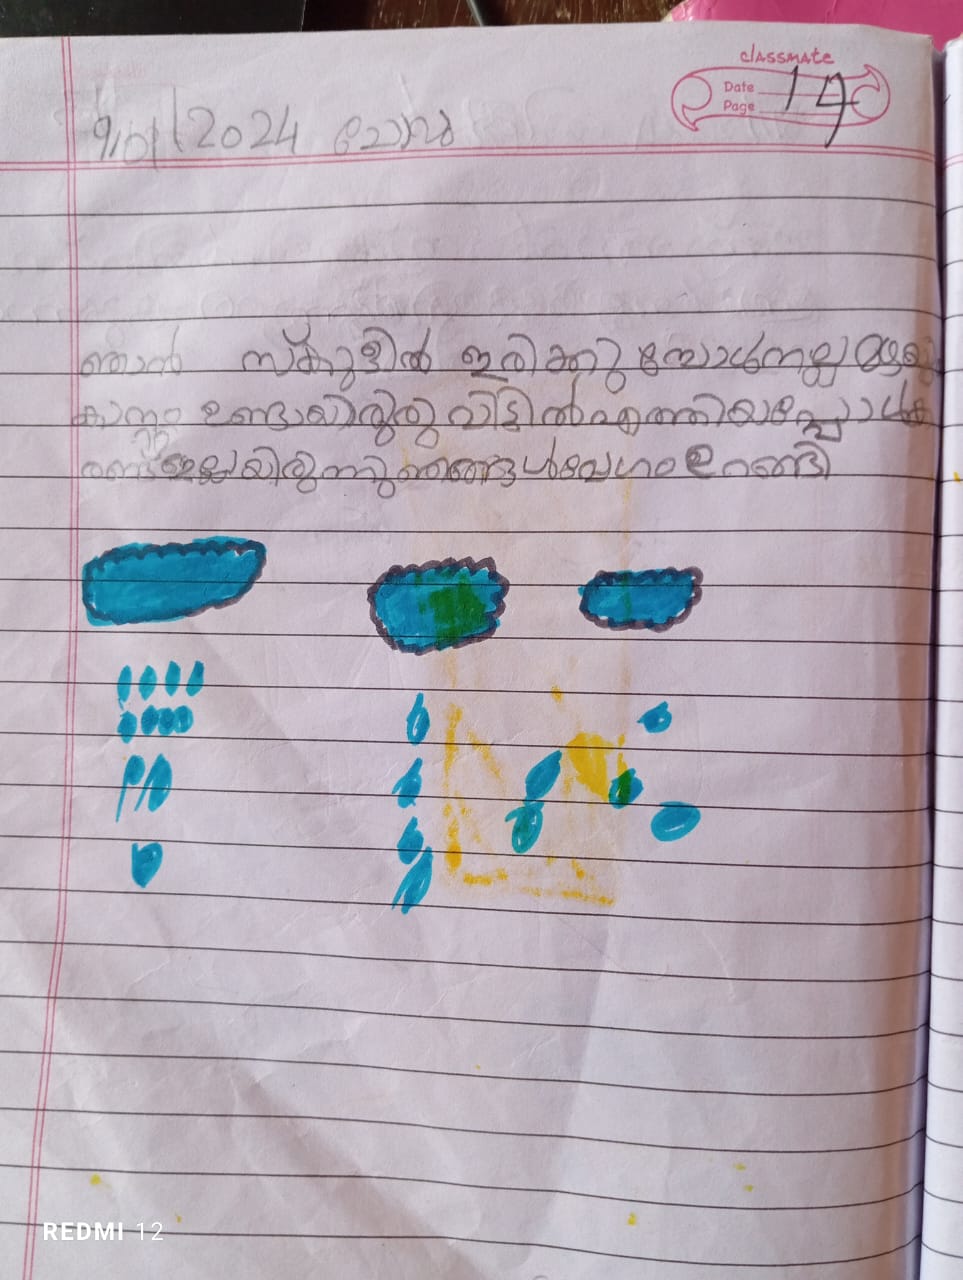 classmate
Date
Page 17
9/01/2024 ചൊവ്വ
ഞാൻ സ്കൂളിൽ ഇരിക്കു മ്പോൾ നല്ല മഴയു
കാറ്റും ഉണ്ടായിരുന്നു വീട്ടിൽ എത്തിയപ്പോൾ ക
റണ്ട് ഇല്ലായിരുന്നു ഞങ്ങൾ വേഗം ഉറങ്ങി
REDMI 12